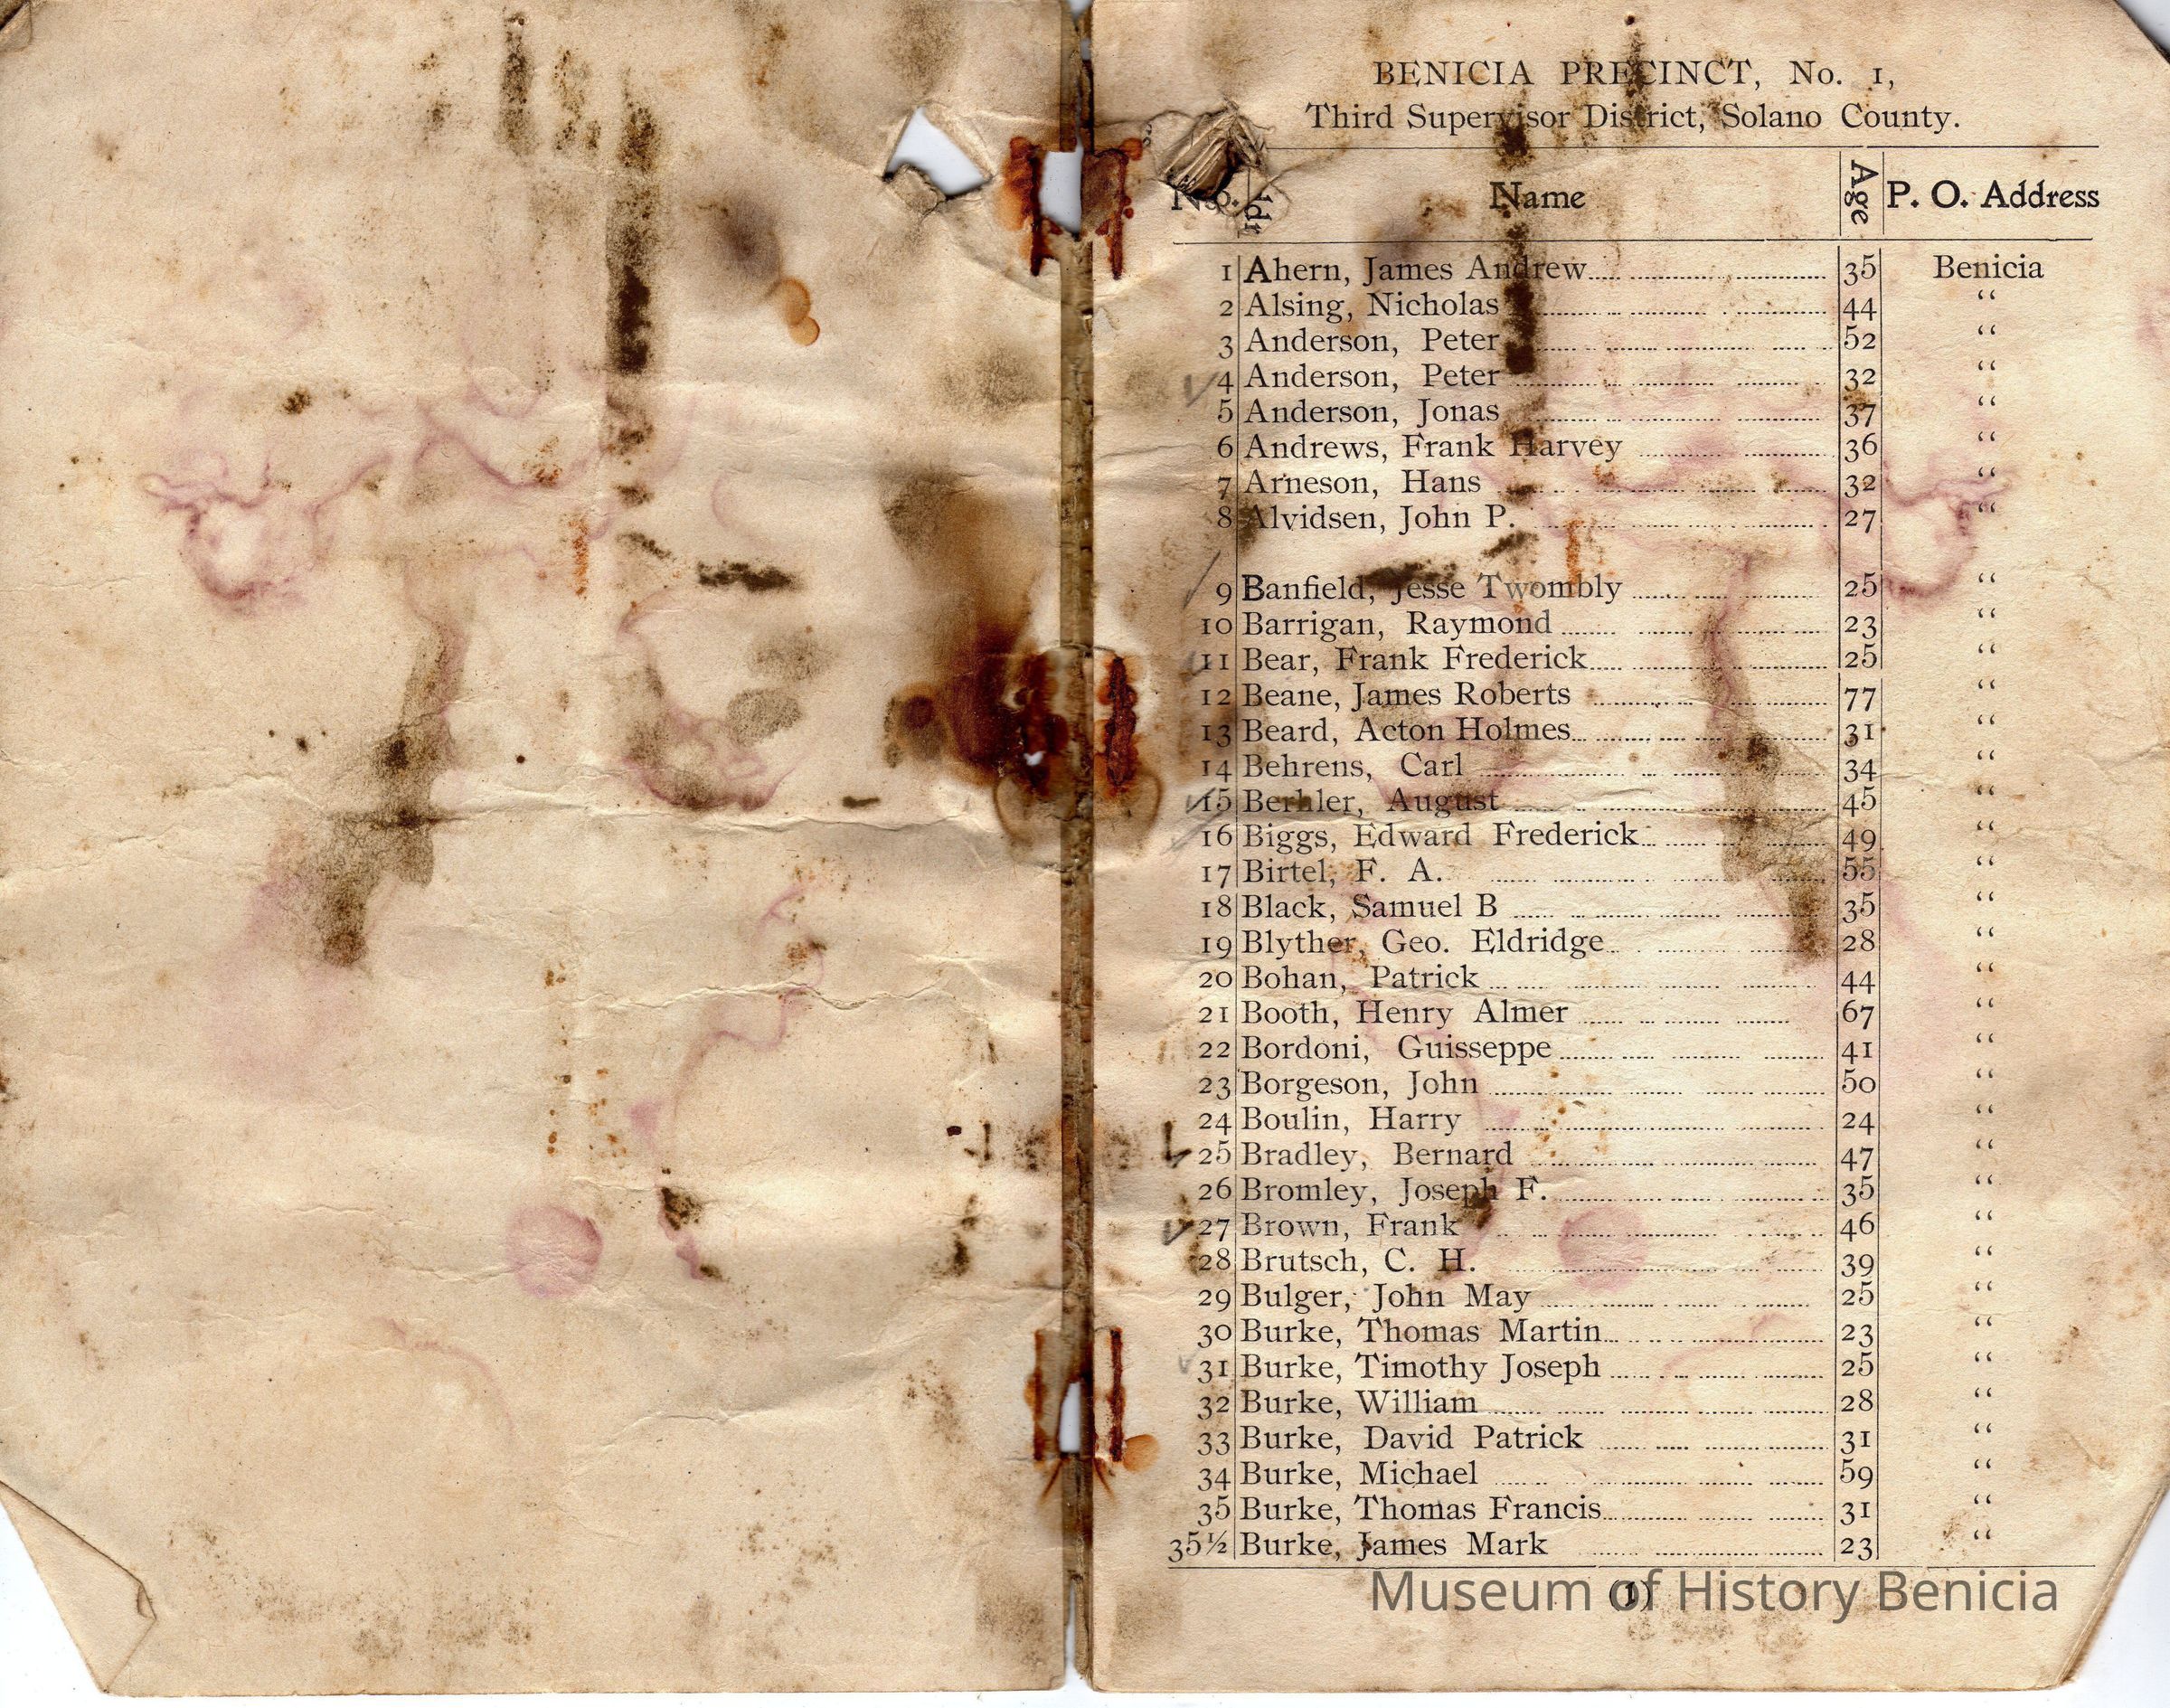 BENICIA PRECINCT, No. 1,
Third Supervisor District, Solano County.
No. Name Age P. O. Address
1 Ahern, James Andrew 35 Benicia
2 Alsing, Nicholas 44 “
3 Anderson, Peter 52 “
4 Anderson, Peter 32 “
5 Anderson, Jonas 37 “
6 Andrews, Frank Harvey 36 “
7 Arneson, Hans 32 “
8 Alvidsen, John P. 27 “
9 Banfield, Jesse Twombly 25 “
10 Barrigan, Raymond 23 “
11 Bear, Frank Frederick 25 “
12 Beane, James Roberts 77 “
13 Beard, Acton Holmes 31 “
14 Behrens, Carl 34 “
15 Berhler, August 45 “
16 Biggs, Edward Frederick 49 “
17 Birtel, F. A. 55 “
18 Black, Samuel B 35 “
19 Blyther, Geo. Eldridge 28 “
20 Bohan, Patrick 44 “
21 Booth, Henry Almer 67 “
22 Bordoni, Guisseppe 41 “
23 Borgeson, John 50 “
24 Boulin, Harry 24 “
25 Bradley, Bernard 47 “
26 Bromley, Joseph F. 35 “
27 Brown, Frank 46 “
28 Brutsch, C. H. 39 “
29 Bulger, John May 25 “
30 Burke, Thomas Martin 23 “
31 Burke, Timothy Joseph 25 “
32 Burke, William 28 “
33 Burke, David Patrick 31 “
34 Burke, Michael 59 “
35 Burke, Thomas Francis 31 “
35½ Burke, James Mark 23 “
(1)
Museum of History Benicia